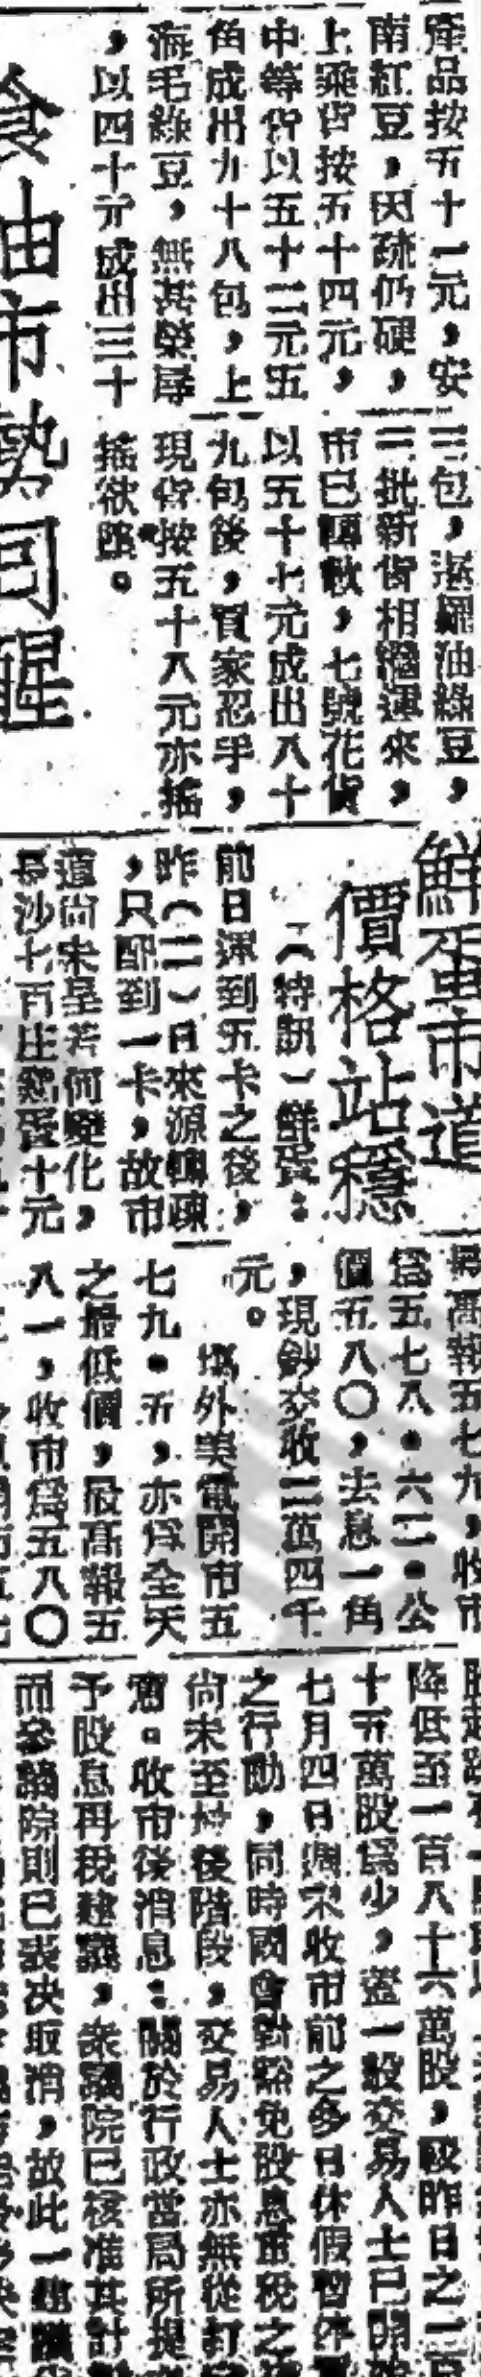 產品按五十一元，安
南紅豆，因疏仍硬，
上乘貨按五十四元，
中等貨以五十二元五
角成出九十八包，上
海毛綠豆，無甚榮辱
，以四十元成出三十
三包，暹羅油綠豆，
二批新貨相繼運來，
市已轉軟，七號花貨
以五十七元成出八十
九包後，買家忍手，
現貨按五十八元亦搖
搖欲墜。
食油市勢回醒
鮮蛋市道
價格站穩
（特訊）鮮蛋：
前日運到五卡之後，
昨（二）日來源轉疎
，只配到一卡，故市
道尚未呈若何變化，
長沙七百庄鷄蛋十元
最高報五七九，收市
爲五七八・六二・公
價五八〇，去息一角
，現鈔交收二萬四千
元。
塲外美電開市五
七九・五，亦爲全天
之最低價，最高報五
八一，收市爲五八〇
降低至一百八十六萬股，較昨日之二百
十五萬股爲少，蓋一般交易人士已開
七月四日週末收市前之多日休假暫作
之行動，同時國會對豁免股息重稅之
尚未至最後階段，交易人士亦無從打
。收市後消息：關於行政當局所提
予股息再稅建議，衆議院已核准其計
而參議院則已表决取消，故此一建議